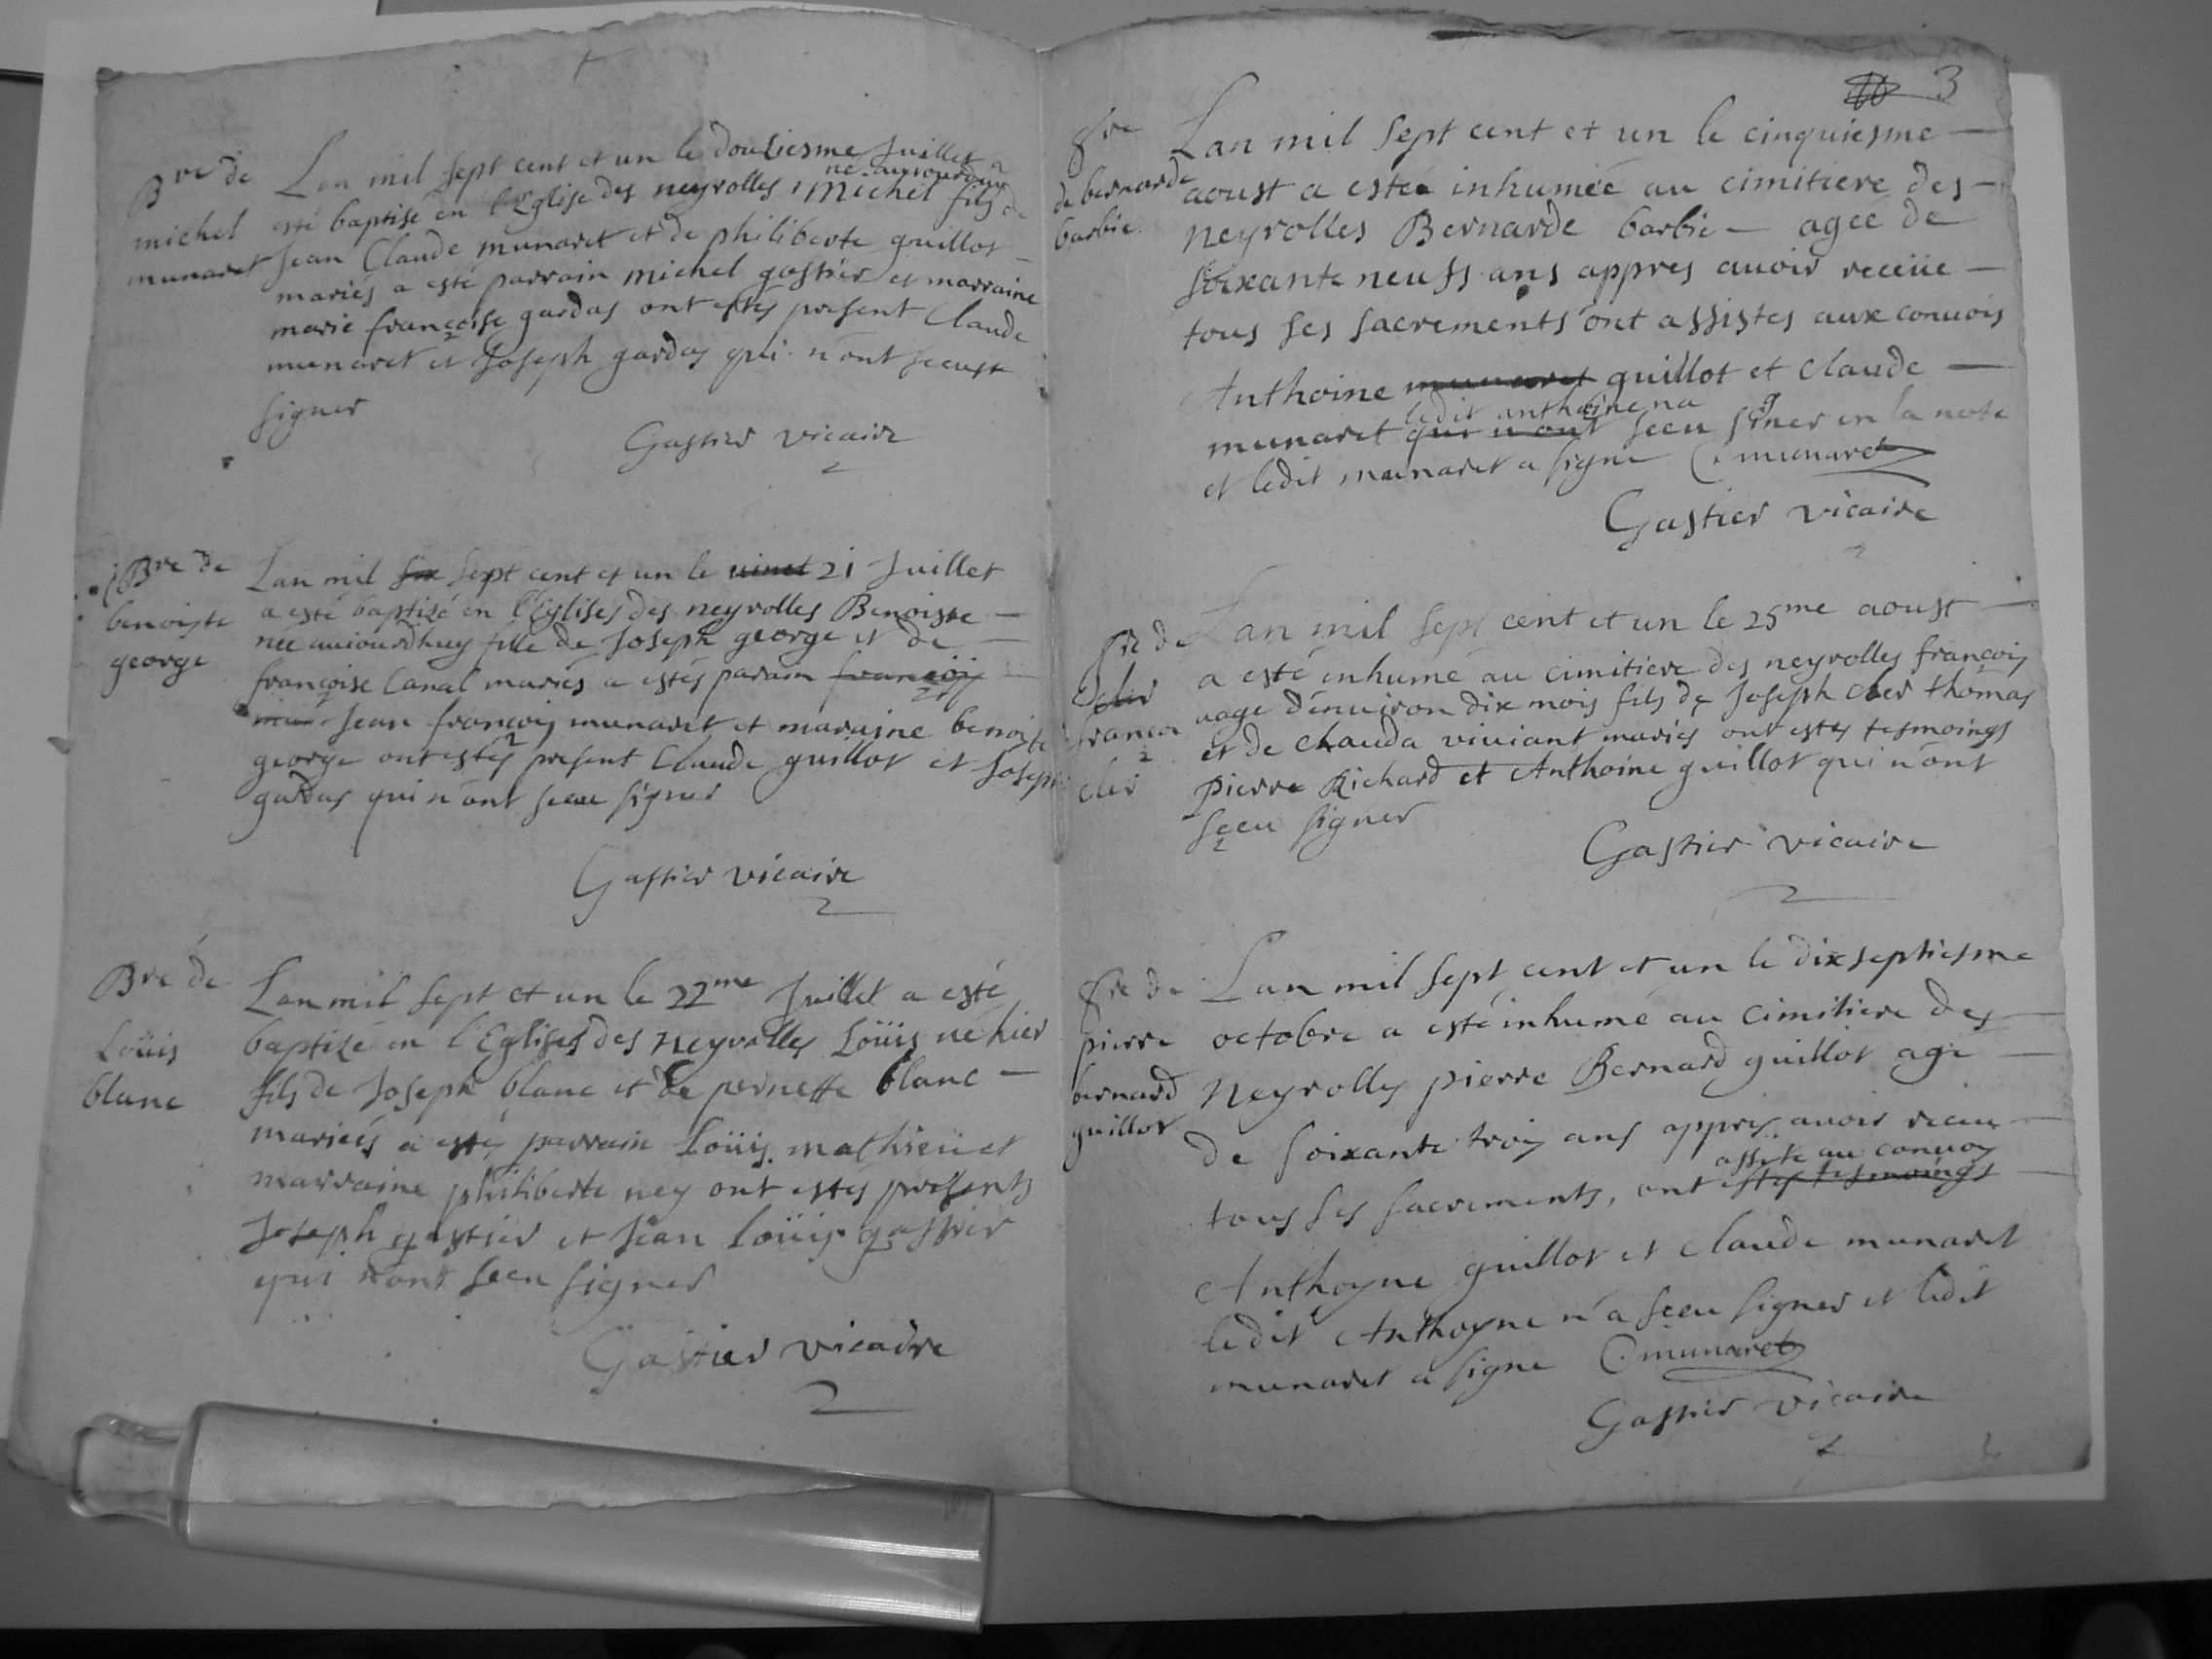 Bre de
michel
munaret
Lan mil sept cent et un le douziesme Juillet a
né aujourdhuy
esté baptisé en l'Eglise des neyrolles, Michel fils de
Jean Claude munaret et de philiberte guillot
mariés a esté parrain michel gastier et marraine
marie françoise gardas ont estés present Claude
munaret et Joseph gardas qui n'ont sceust
signer
Gastier vicaire
Bre de
benoiste
george
Lan mil six sept cent et un le vint 21 Juillet
a esté baptizé en l'Eglises des neyrolles Benoiste
nee auiourdhuy fille de Joseph george et de
françoise Canal mariés a estés parain françois
Jean françois munaret et maraine benoiste
george ont estés present Claude guillot et Joseph
gardas qui n'ont sceu signer
Gastier vicaire
Bre de
Loüis
blanc
Lan mil sept et un le 22me Juillet a esté
baptizé en l'Eglises des Neyrolles Loüis né hier
fils de Joseph blanc et de pernette blanc
mariéés a estés parrain Loüis mathieu et
marraine philiberte ney ont estés presents
Joseph gastier et Jean Loüis gastier
qui n'ont sceu signer
Gastier vicaire
3
Sre
de bernarde
barbie
Lan mil sept cent et un le cinquiesme
aoust a estée inhumée au cimitiere des
neyrolles Bernarde barbie agee de
soixante neufs ans appres auoir receüe
tous ses sacrements ont assistes aux conuois
Anthoine munaret guillot et Claude
ledit anthoine na
munaret qui n'ont sceu siner en la note
et ledit munaret a signé C. munaret
Gastier vicaire
Sre de
cler
francois
cler
Lan mil sept cent et un le 25me aoust
a esté inhumé au cimitiere des neyrolles françois
aage d'enuiron dix mois fils de Joseph cler thomas
et de Clauda viuiant mariés ont estés tesmoings
pierre Richard et Anthoine guillot qui n'ont
sceu signer
Gastier vicaire
Sre de
pierre
bernard
guillot
Lan mil sept cent et un le dixseptiesme
octobre a esté inhumé au cimitiere des
Neyrolles pierre Bernard guillot agé
de soixante trois ans appres auoir receu
assiste au conuoy
tous ses sacrements, ont estés tesmoings
Anthoyne guillot et Claude munaret
ledit Anthoyne n'a sceu signer et ledit
munaret a signe C. munaret
Gastier vicaire